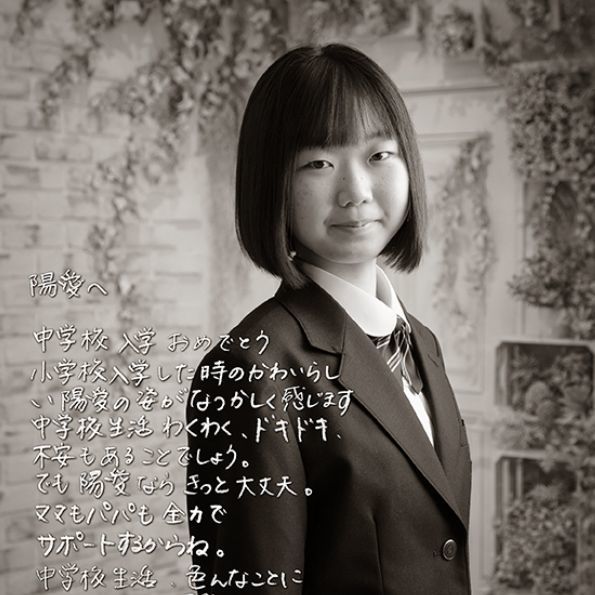 陽愛へ
中学校 入学 おめでとう
小学校入学した時のかわいらし
い陽愛の姿がなつかしく感じます
中学校生活 わくわく、ドキドキ、
不安もあることでしょう。
でも 陽愛なら きっと大丈夫。
ママもパパも 全力で
サポートするからね。
中学校生活、色んなことに